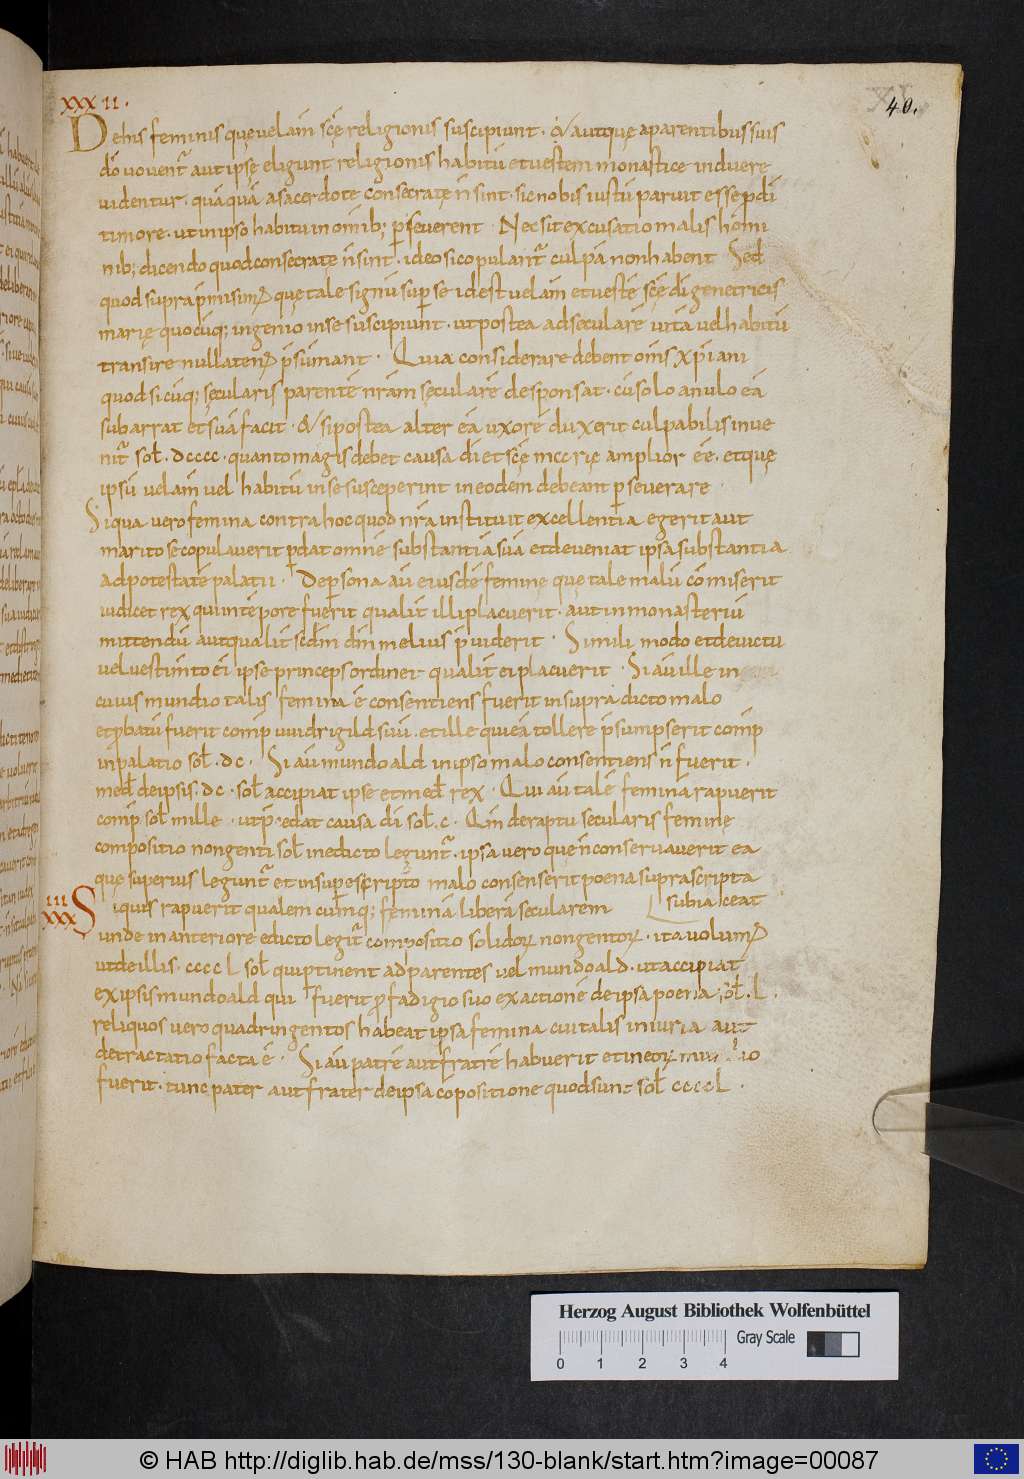 XXXII.
40.
De his feminis quę velam̄ sc̄ę religionis suscipiunt . & aut quę a parentibus suis
dō vovent᷑ aut ipsę eligunt religionis habitū et vestem monastice induere
videntur . quāquā a sacerdote consecratę n̄ sint . sic nobis iustū paruit esse p̱ dī
timore . ut in ipso habitu in om̄ib; p̱severent . Nec sit excusatio malis homi
nib; dicendo quod consecrate n̄ sint . ideo si copulant᷑ culpā non habent Sed
quod supra p̄misim᷒ que tale signū sup̱ se id est velam̄ et vestē sc̄ę dī genetricis
marię quocūq; ingenio in se suscipiunt . ut postea ad secularē vitā vel habitū
transire nullaten᷒ p̄sumant . Quia considerare debent om̄s xp̄iani
quod si cūq; sęcularis parentē nr̄am sęcularē desponsat . cū solo anulo eā
subarrat et suā facit . & si postea alter eā uxorē duxerit culpabilis inve
nit᷑ sol̄ . dcccc . quanto magis debet causa dī et sc̄ę marię amplior eē . et quę
ipsū velam̄ vel habitū in se susceperint in eodem debeant p̱severare .
Si qua vero femina contra hoc quod nr̄a instituit excellentia egerit aut
marito se copulaverit p̱dat omnē substantiā suā et deveniat ipsa substantia
ad potestatē palatii . De p̱sona aū eiusdē femine que tale malū cōmiserit
iudicet rex qui in tēpore fuerit qualit̄ illi placuerit . aut in monasteriū
mittendū aut qualit̄ scd̄m dm̄ melius p̱viderit . Simili modo et de victu
vel vestim̄to ei ipse princeps ordinet qualit̄ ei placuerit . Si aū ille in
cuius mundio talis femina ē consentiens fuerit in supradicto malo
et p̱batū fuerit comp̄ uuidrigild suū . et ille qui eā tollere p̄sumpserit comp̄
in palatio sol̄ . dc . Si aū mundoald in ipso malo consentiens n̄ fuerit .
med̄ de ipsis . dc . sol̄ accipiat ipse et med̄ rex . Qui aū talē feminā rapuerit
comp̄ sol̄ mille . ut p̄cedat causa dī sol̄ . c . Qm̄ de raptu secularis feminę
compositio nongenti sol̄ in edicto legunt᷑ . ipsa vero que n̄ conservaverit ea
quę superius legunt᷑ et in supescripto malo consenserit poena suprascripta
XXXIII
Si quis rapuerit qualem cum̄q; feminā liberā secularem subiaceat
unde in anteriore edicto legit᷑ compositio solidoꝝ nongentoꝝ . ita volum᷒
ut de illis . ccccl sol̄ qui p̱tinent ad parentes vel mundoald . ut accipiat
ex ipsis mundoald qui fuerit p̱ fadigio suo exactionē de ipsa poena sol̄ . l .
reliquos vero quadringentos habeat ipsa femina cui talis iniuria aut
detractatio facta ē . Si aū patrē aut fratrē habuerit et in eoꝝ mundio
fuerit . tunc pater aut frater de ipsa cōpositione quod sunt sol̄ ccccl .
Herzog August Bibliothek Wolfenbüttel
Gray Scale
0 1 2 3 4
© HAB http://diglib.hab.de/mss/130-blank/start.htm?image=00087